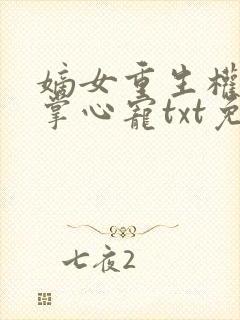 嫡女重生權
掌心寵txt免
七夜2